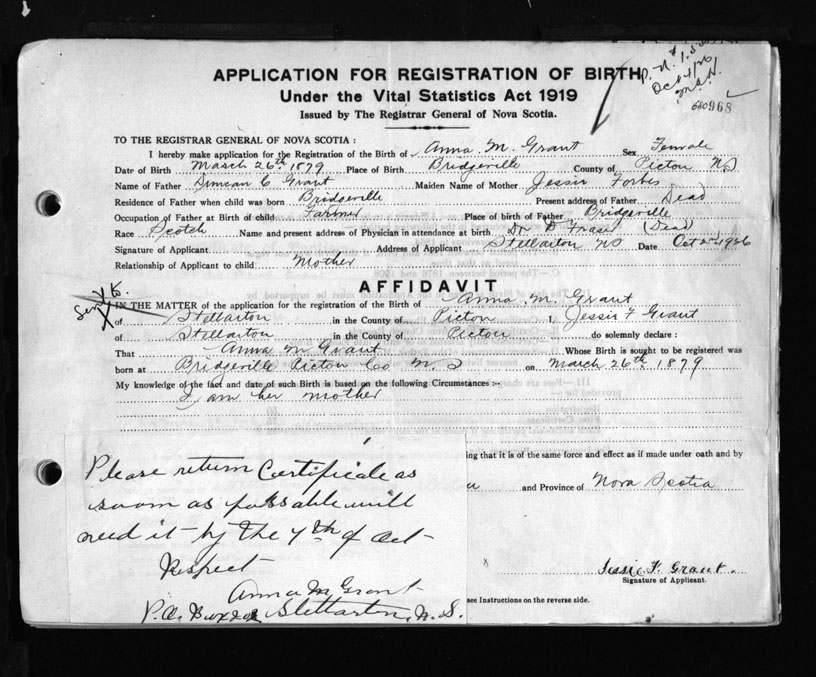 APPLICATION FOR REGISTRATION OF BIRTH
Under the Vital Statistics Act 1919
Issued by The Registrar General of Nova Scotia.
Oct 4/26
680968
TO THE REGISTRAR GENERAL OF NOVA SCOTIA :
I hereby make application for the Registration of the Birth of Anna. M. Grant Sex Female
Date of Birth March 26th 1879 Place of Birth Bridgeville County of Pictou N.S
Name of Father Duncan C Grant Maiden Name of Mother Jessie Forbes
Residence of Father when child was born Bridgeville Present address of Father Dead
Occupation of Father at Birth of child Farmer Place of birth of Father Bridgeville
Race Scotch Name and present address of Physician in attendance at birth Dr. D Fraser (Dead)
Signature of Applicant Address of Applicant Stellarton NS Date Oct 2nd 1926
Relationship of Applicant to child Mother
AFFIDAVIT
IN THE MATTER of the application for the registration of the Birth of Anna M. Grant
of Stellarton in the County of Pictou I, Jessie F Grant
of Stellarton in the County of Pictou do solemnly declare :
That Anna M Grant Whose Birth is sought to be registered was
born at Bridgeville Pictou Co N.S on March 26th 1879
My knowledge of the fact and date of such Birth is based on the following Circumstances :-
I am her mother
ing that it is of the same force and effect as if made under oath and by
and Province of Nova Scotia
x
Jessie F. Grant.
Signature of Applicant.
see Instructions on the reverse side.
Please return Certificate as
soom as possable will
need it by the 7th of Oct
Respect
Anna M Grant
P.O. Box Stellarton, N.S.